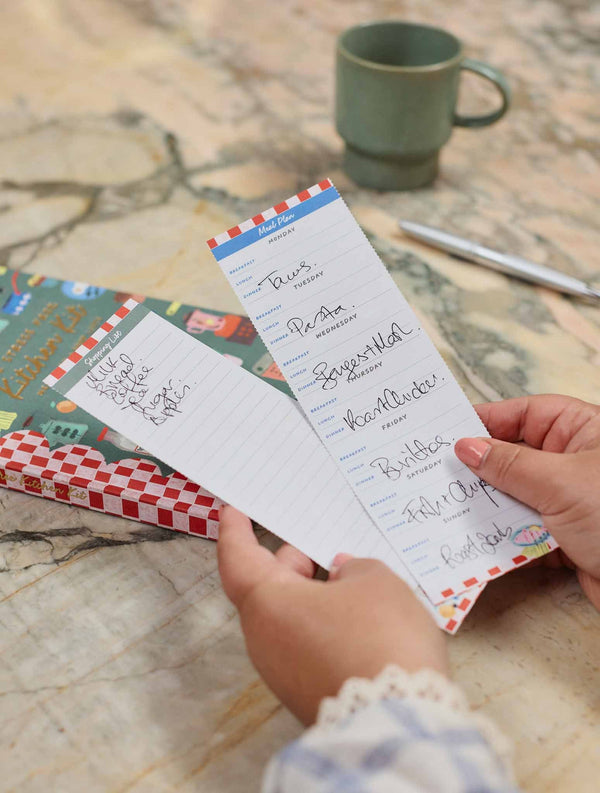 Meal Plan
MONDAY
BREAKFAST
LUNCH
DINNER Tacos.
TUESDAY
BREAKFAST
LUNCH
DINNER Pasta
WEDNESDAY
BREAKFAST
LUNCH
DINNER Sausages + Mash
THURSDAY
BREAKFAST
LUNCH
DINNER Roast Chicken.
FRIDAY
BREAKFAST
LUNCH
DINNER Burittos
SATURDAY
BREAKFAST
LUNCH
DINNER Fish + Chips
SUNDAY
BREAKFAST
LUNCH
DINNER Roast Lamb
Shopping List
Milk
Bread
Coffee
Sugar
Apples
Kitchen Kit
The Kitchen Kit